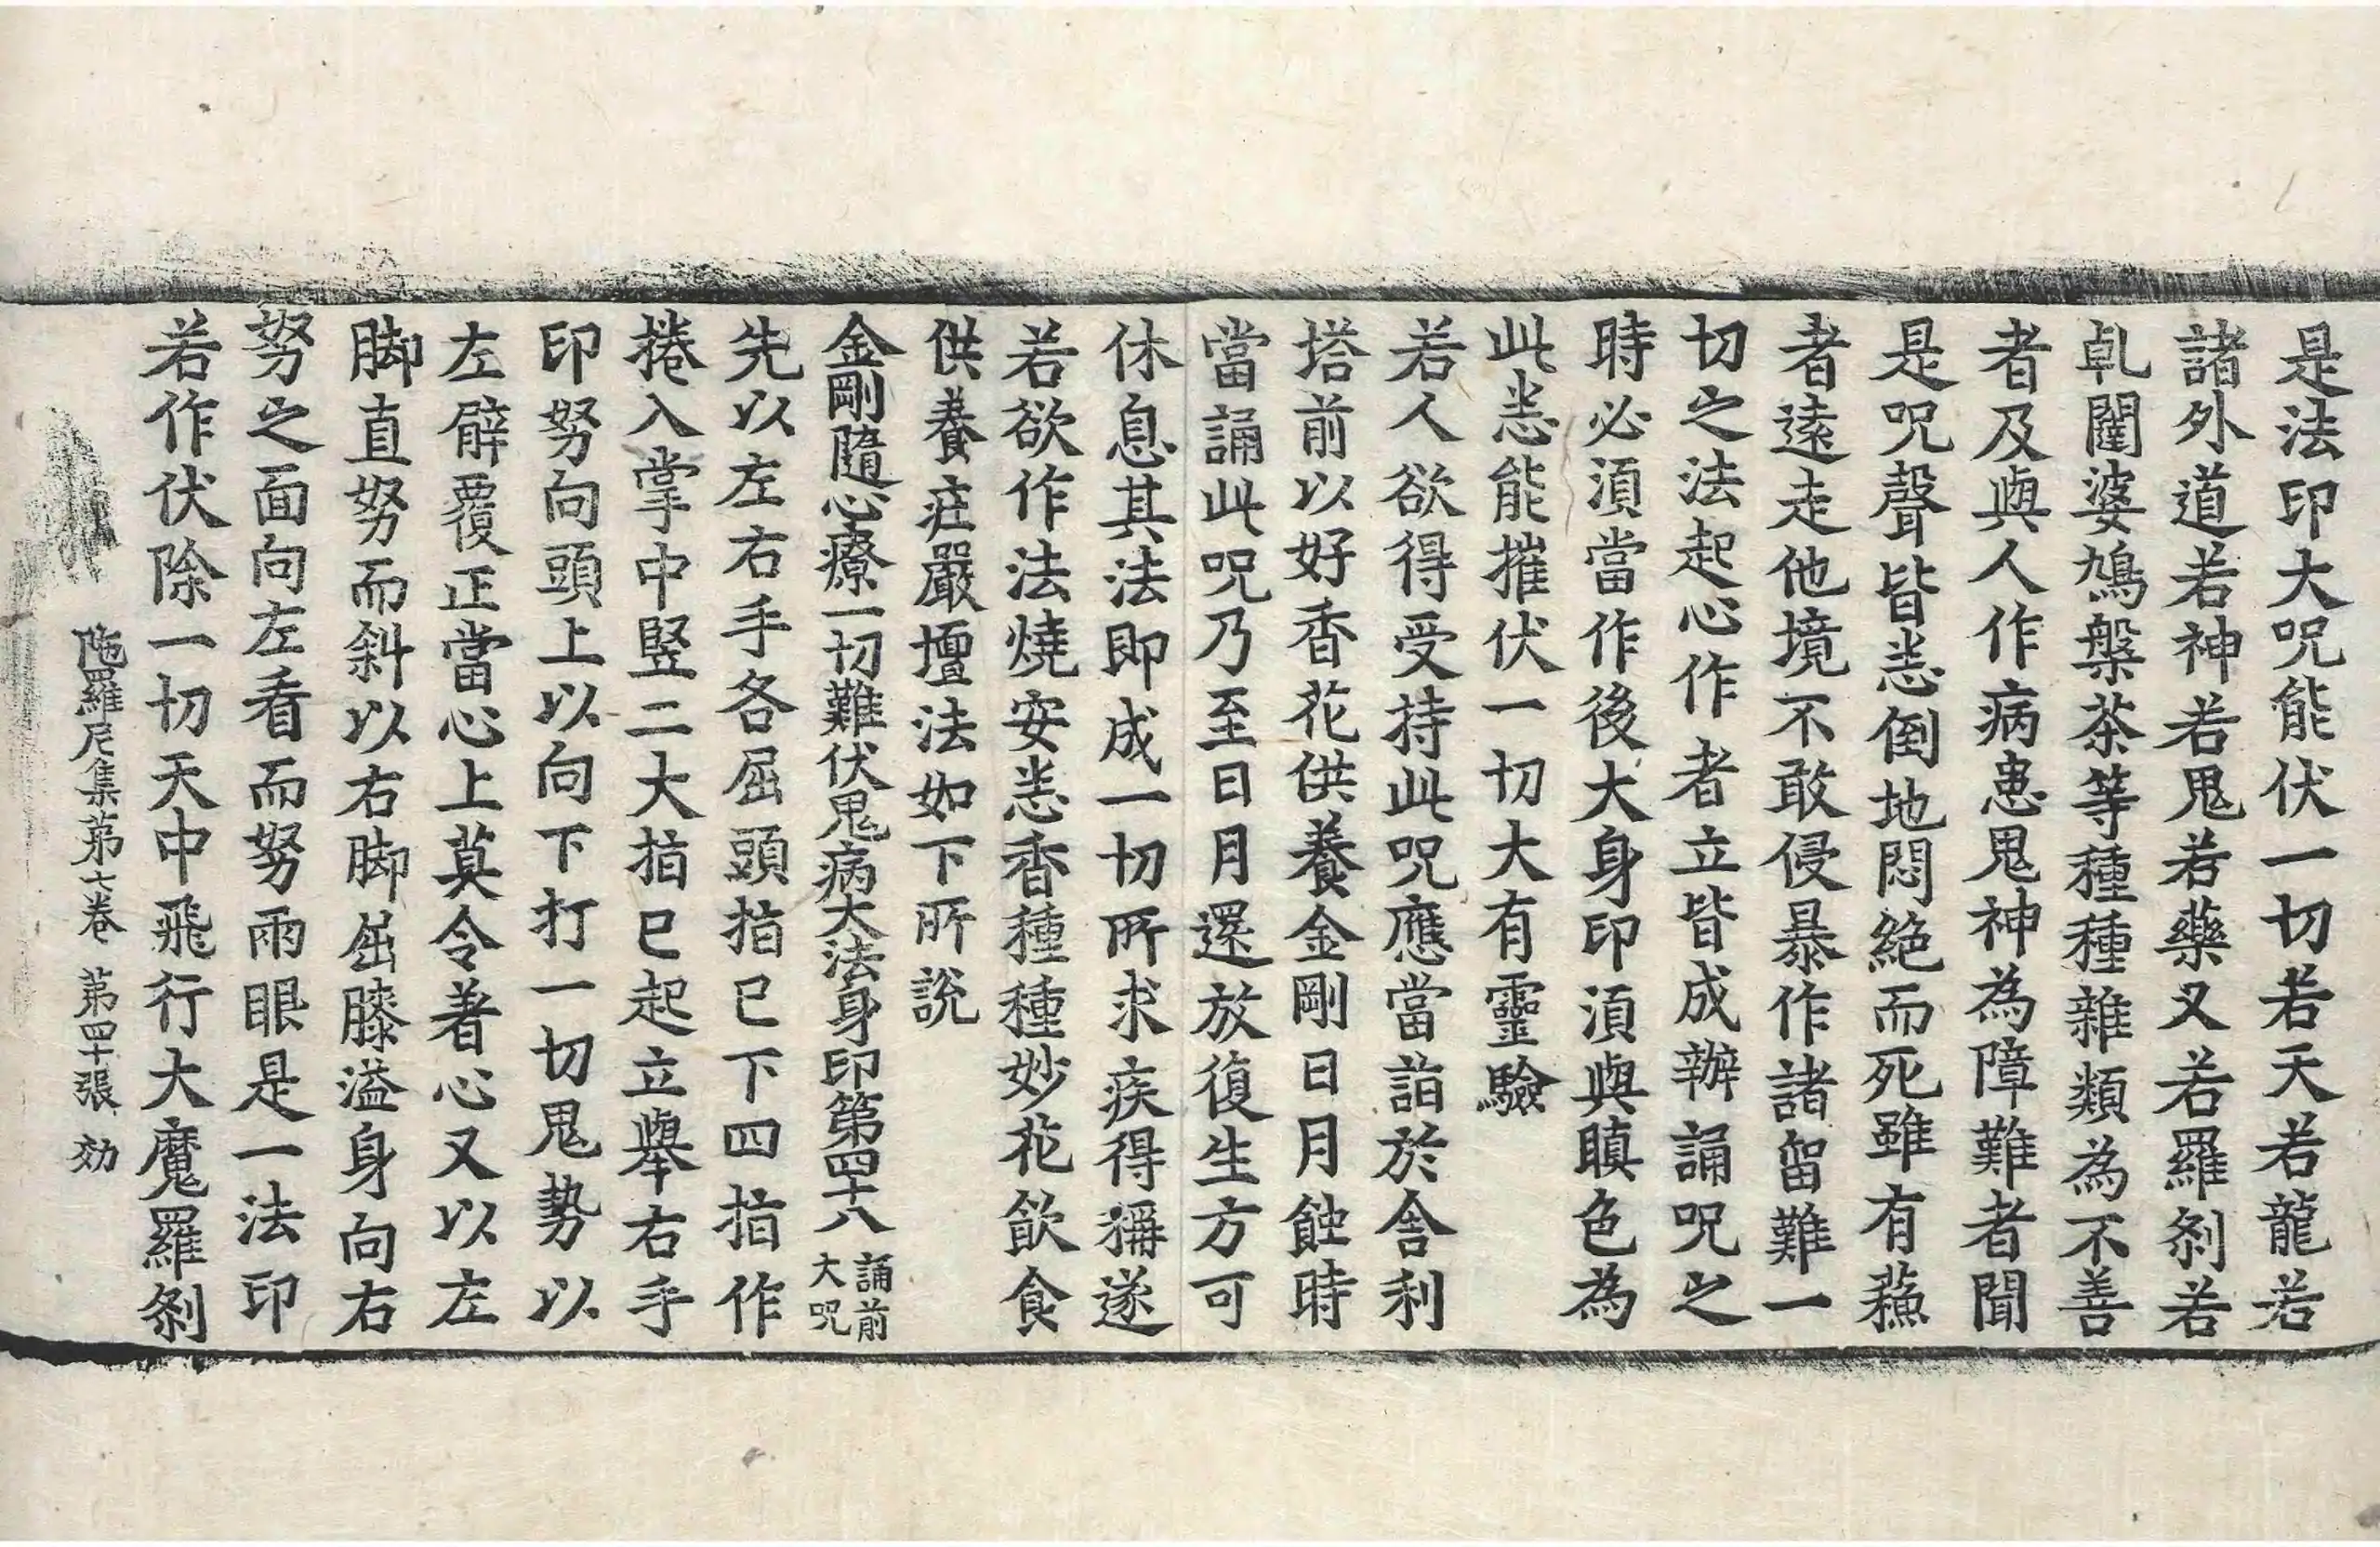 是法印大呪能伏一切若天若龍若
諸外道若神若鬼若藥叉若羅剎若
乹闥婆鳩槃茶等種種雜類為不善
者及與人作病患鬼神為障難者聞
是呪聲皆悉倒地悶絕而死雖有蘓
者遠走他境不敢侵暴作諸留難一
切之法起心作者立皆成辦誦呪之
時必湏當作後大身印湏與瞋色為
此悉能摧伏一切大有靈驗
若人欲得受持此呪應當詣於舍利
塔前以好香花供養金剛日月蝕時
當誦此呪乃至日月還放復生方可
休息其法即成一切所求疾得稱遂
若欲作法燒安悉香種種妙花飲食
供養莊嚴壇法如下所說
金剛隨心療一切難伏鬼病大法身印第四十八 誦前大呪
先以左右手各屈頭指已下四指作
捲入掌中竪二大指已起立舉右手
印努向頭上以向下打一切鬼勢以
左臂覆正當心上莫令著心又以左
脚直努而斜以右脚屈膝溢身向右
努之面向左看而努兩眼是一法印
若作伏除一切天中飛行大魔羅剎
陁羅尼集第七卷 第四十張 効